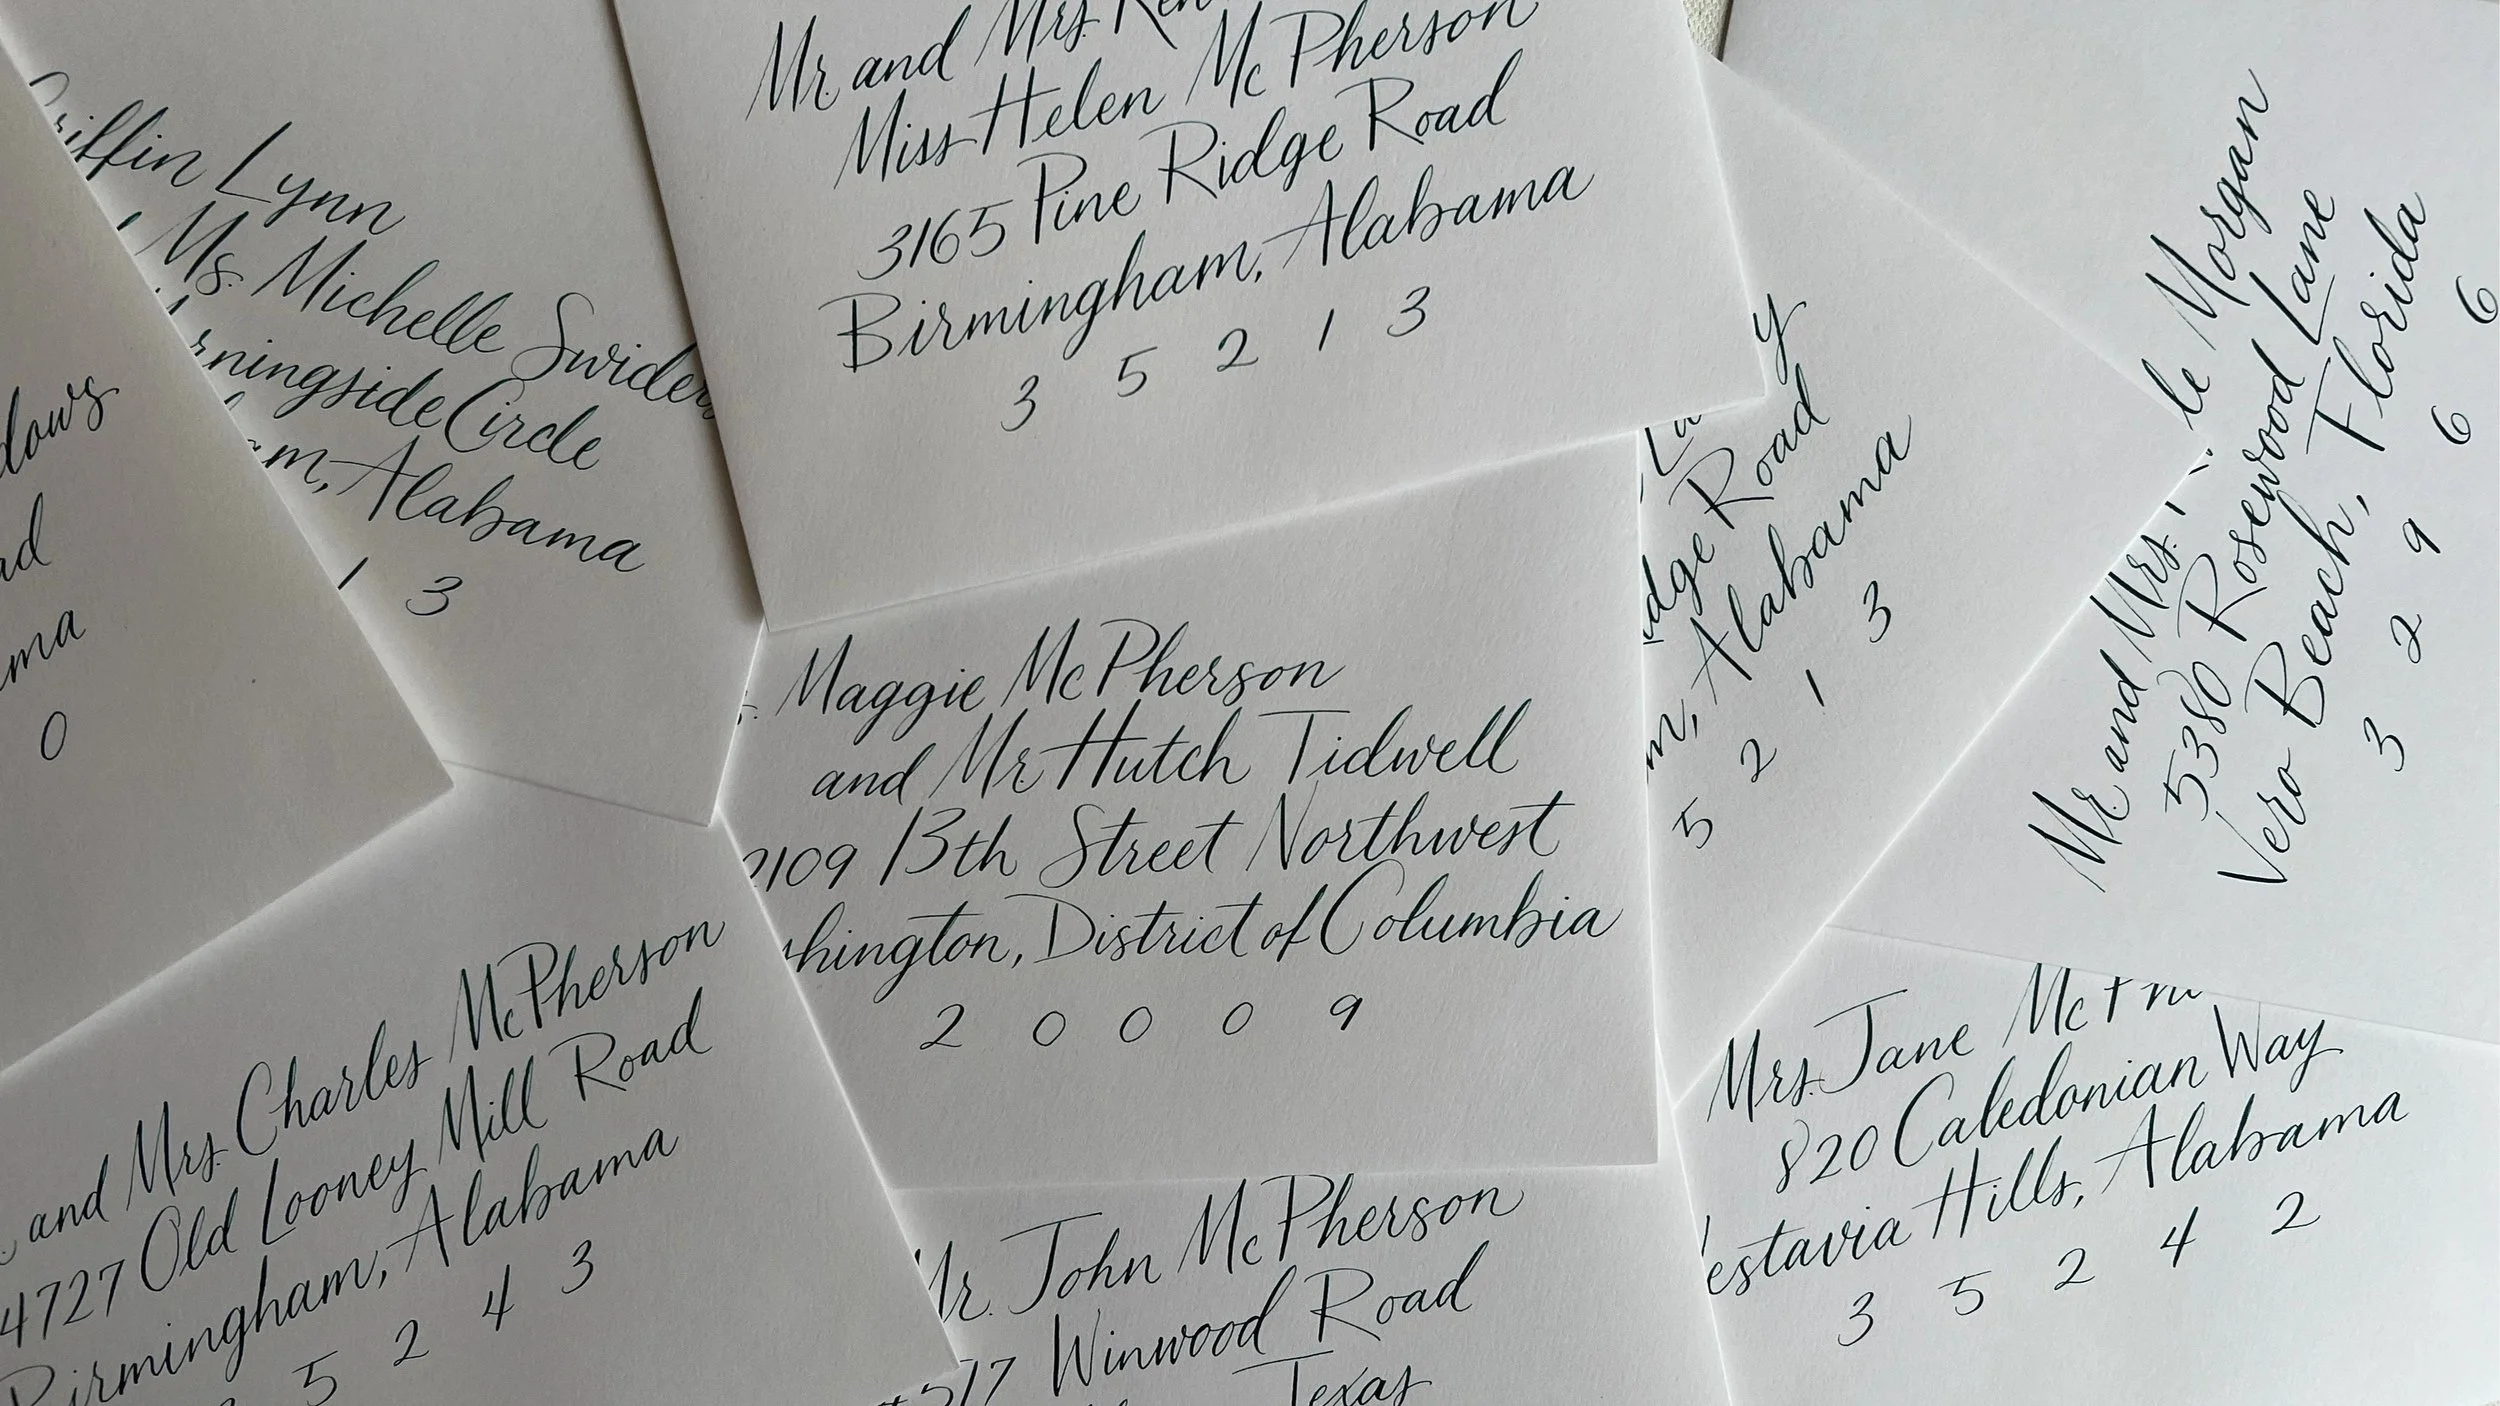 Mr. and Mrs.
Miss Helen McPherson
3165 Pine Ridge Road
Birmingham, Alabama
3 5 2 1 3
Lynn
Ms. Michelle
Circle
Alabama
1 3
0
Maggie McPherson
and Mr. Hutch Tidwell
2109 13th Street Northwest
District of Columbia
2 0 0 0 9
Road
Alabama
5 2 1 3
Mr. and Mrs. Morgan
5380 Rosewood Lane
Vero Beach, Florida
3 2 9 6 6
and Mrs. Charles McPherson
4727 Old Looney Mill Road
Birmingham, Alabama
5 2 4 3
Mr. John McPherson
Winwood Road
Texas
Mrs. Jane
820 Caledonian Way
Hills, Alabama
3 5 2 4 2